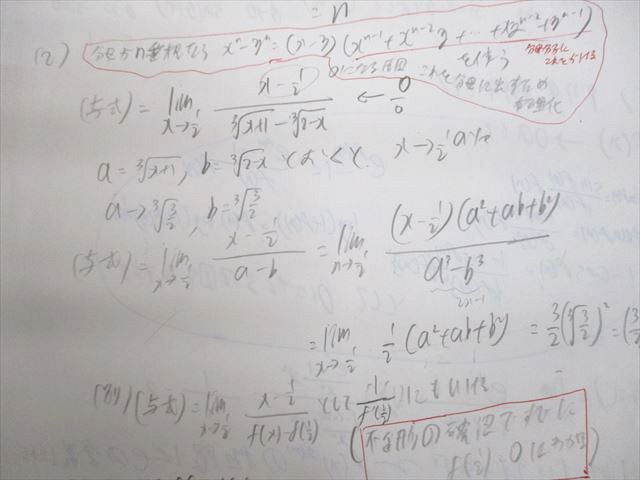 = n
(2) 分母がn乗根なら xⁿ-yⁿ=(x-y)(xⁿ⁻¹+xⁿ⁻²y+…+xyⁿ⁻²+yⁿ⁻¹)
を使う
0になる原因 これを分母に出すため
有理化
(与式)=lim x→1/2 (x-1/2)/(∛(x+1)-∛(2-x)) ← 0/0
a=∛(x+1), b=∛(2-x) とおくと x→1/2のとき
a→∛(3/2), b→∛(3/2)
(与式)=lim x→1/2 (x-1/2)/(a-b) = lim x→1/2 (x-1/2)(a²+ab+b²)/(a³-b³)
2x-1
=lim x→1/2 1/2(a²+ab+b²) = 3/2(∛(3/2))² = (3/
(別)(与式)=lim x→1/2 (x-1/2)/(f(x)-f(1/2)) として 1/f'(1/2) にもいける
不定形の確認で
f(1/2)=0は